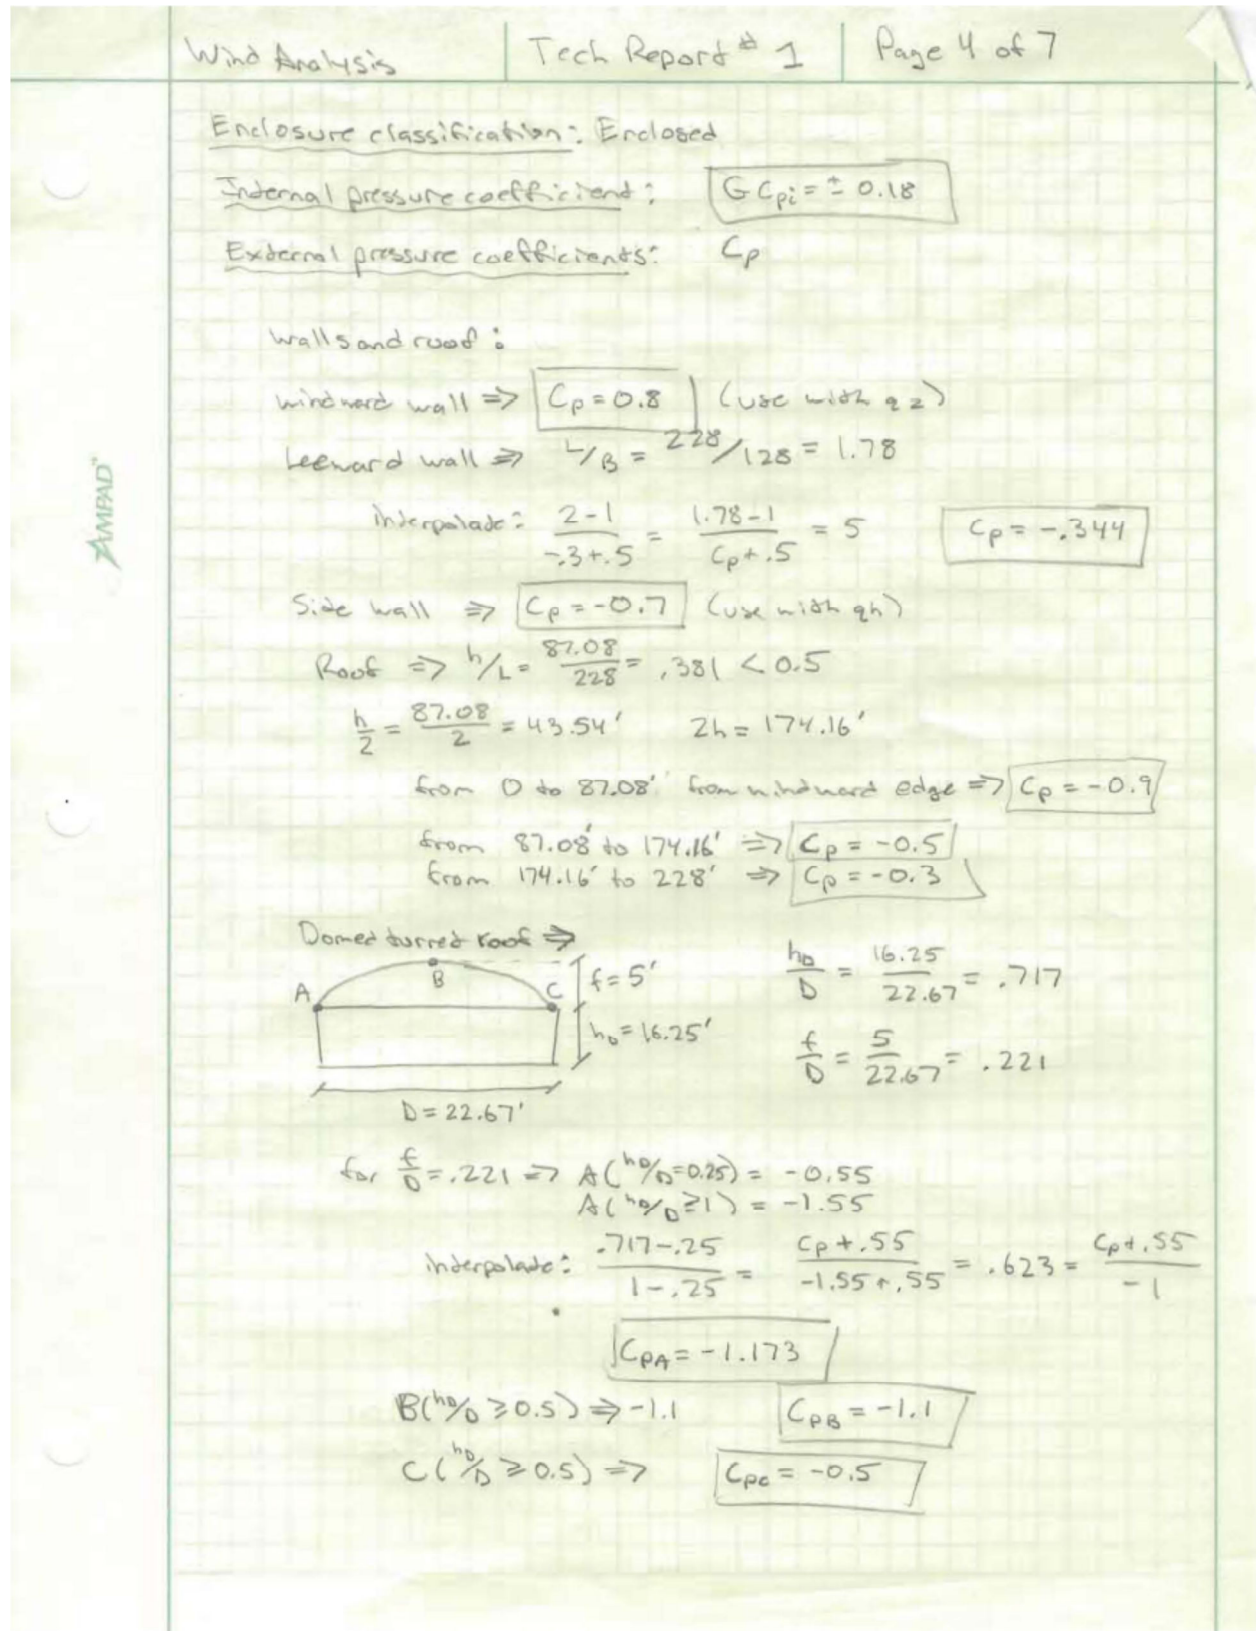 Wind Analysis Tech Report # 1 Page 4 of 7
Enclosure classification: Enclosed
Internal pressure coefficient: GCpi = ± 0.18
External pressure coefficients: Cp
Walls and roof:
windward wall ⇒ Cp = 0.8 (use with qz)
Leeward wall ⇒ L/B = 228/128 = 1.78
AMPAD
interpolate: (2-1)/(-.3+.5) = (1.78-1)/(Cp+.5) = 5 Cp = -.344
Side wall ⇒ Cp = -0.7 (use with qh)
Roof ⇒ h/L = 87.08/228 = .381 < 0.5
h/2 = 87.08/2 = 43.54' 2h = 174.16'
from 0 to 87.08' from windward edge ⇒ Cp = -0.9
from 87.08' to 174.16' ⇒ Cp = -0.5
from 174.16' to 228' ⇒ Cp = -0.3
Domed turret roof ⇒
A B C f = 5' hD/D = 16.25/22.67 = .717
hD = 16.25' f/D = 5/22.67 = .221
D = 22.67'
for f/D = .221 ⇒ A(hD/D=0.25) = -0.55
A(hD/D≥1) = -1.55
interpolate: (.717-.25)/(1-.25) = (Cp+.55)/(-1.55+.55) = .623 = (Cp+.55)/-1
CPA = -1.173
B(hD/D ≥ 0.5) ⇒ -1.1 CPB = -1.1
C(hD/D ≥ 0.5) ⇒ CPC = -0.5